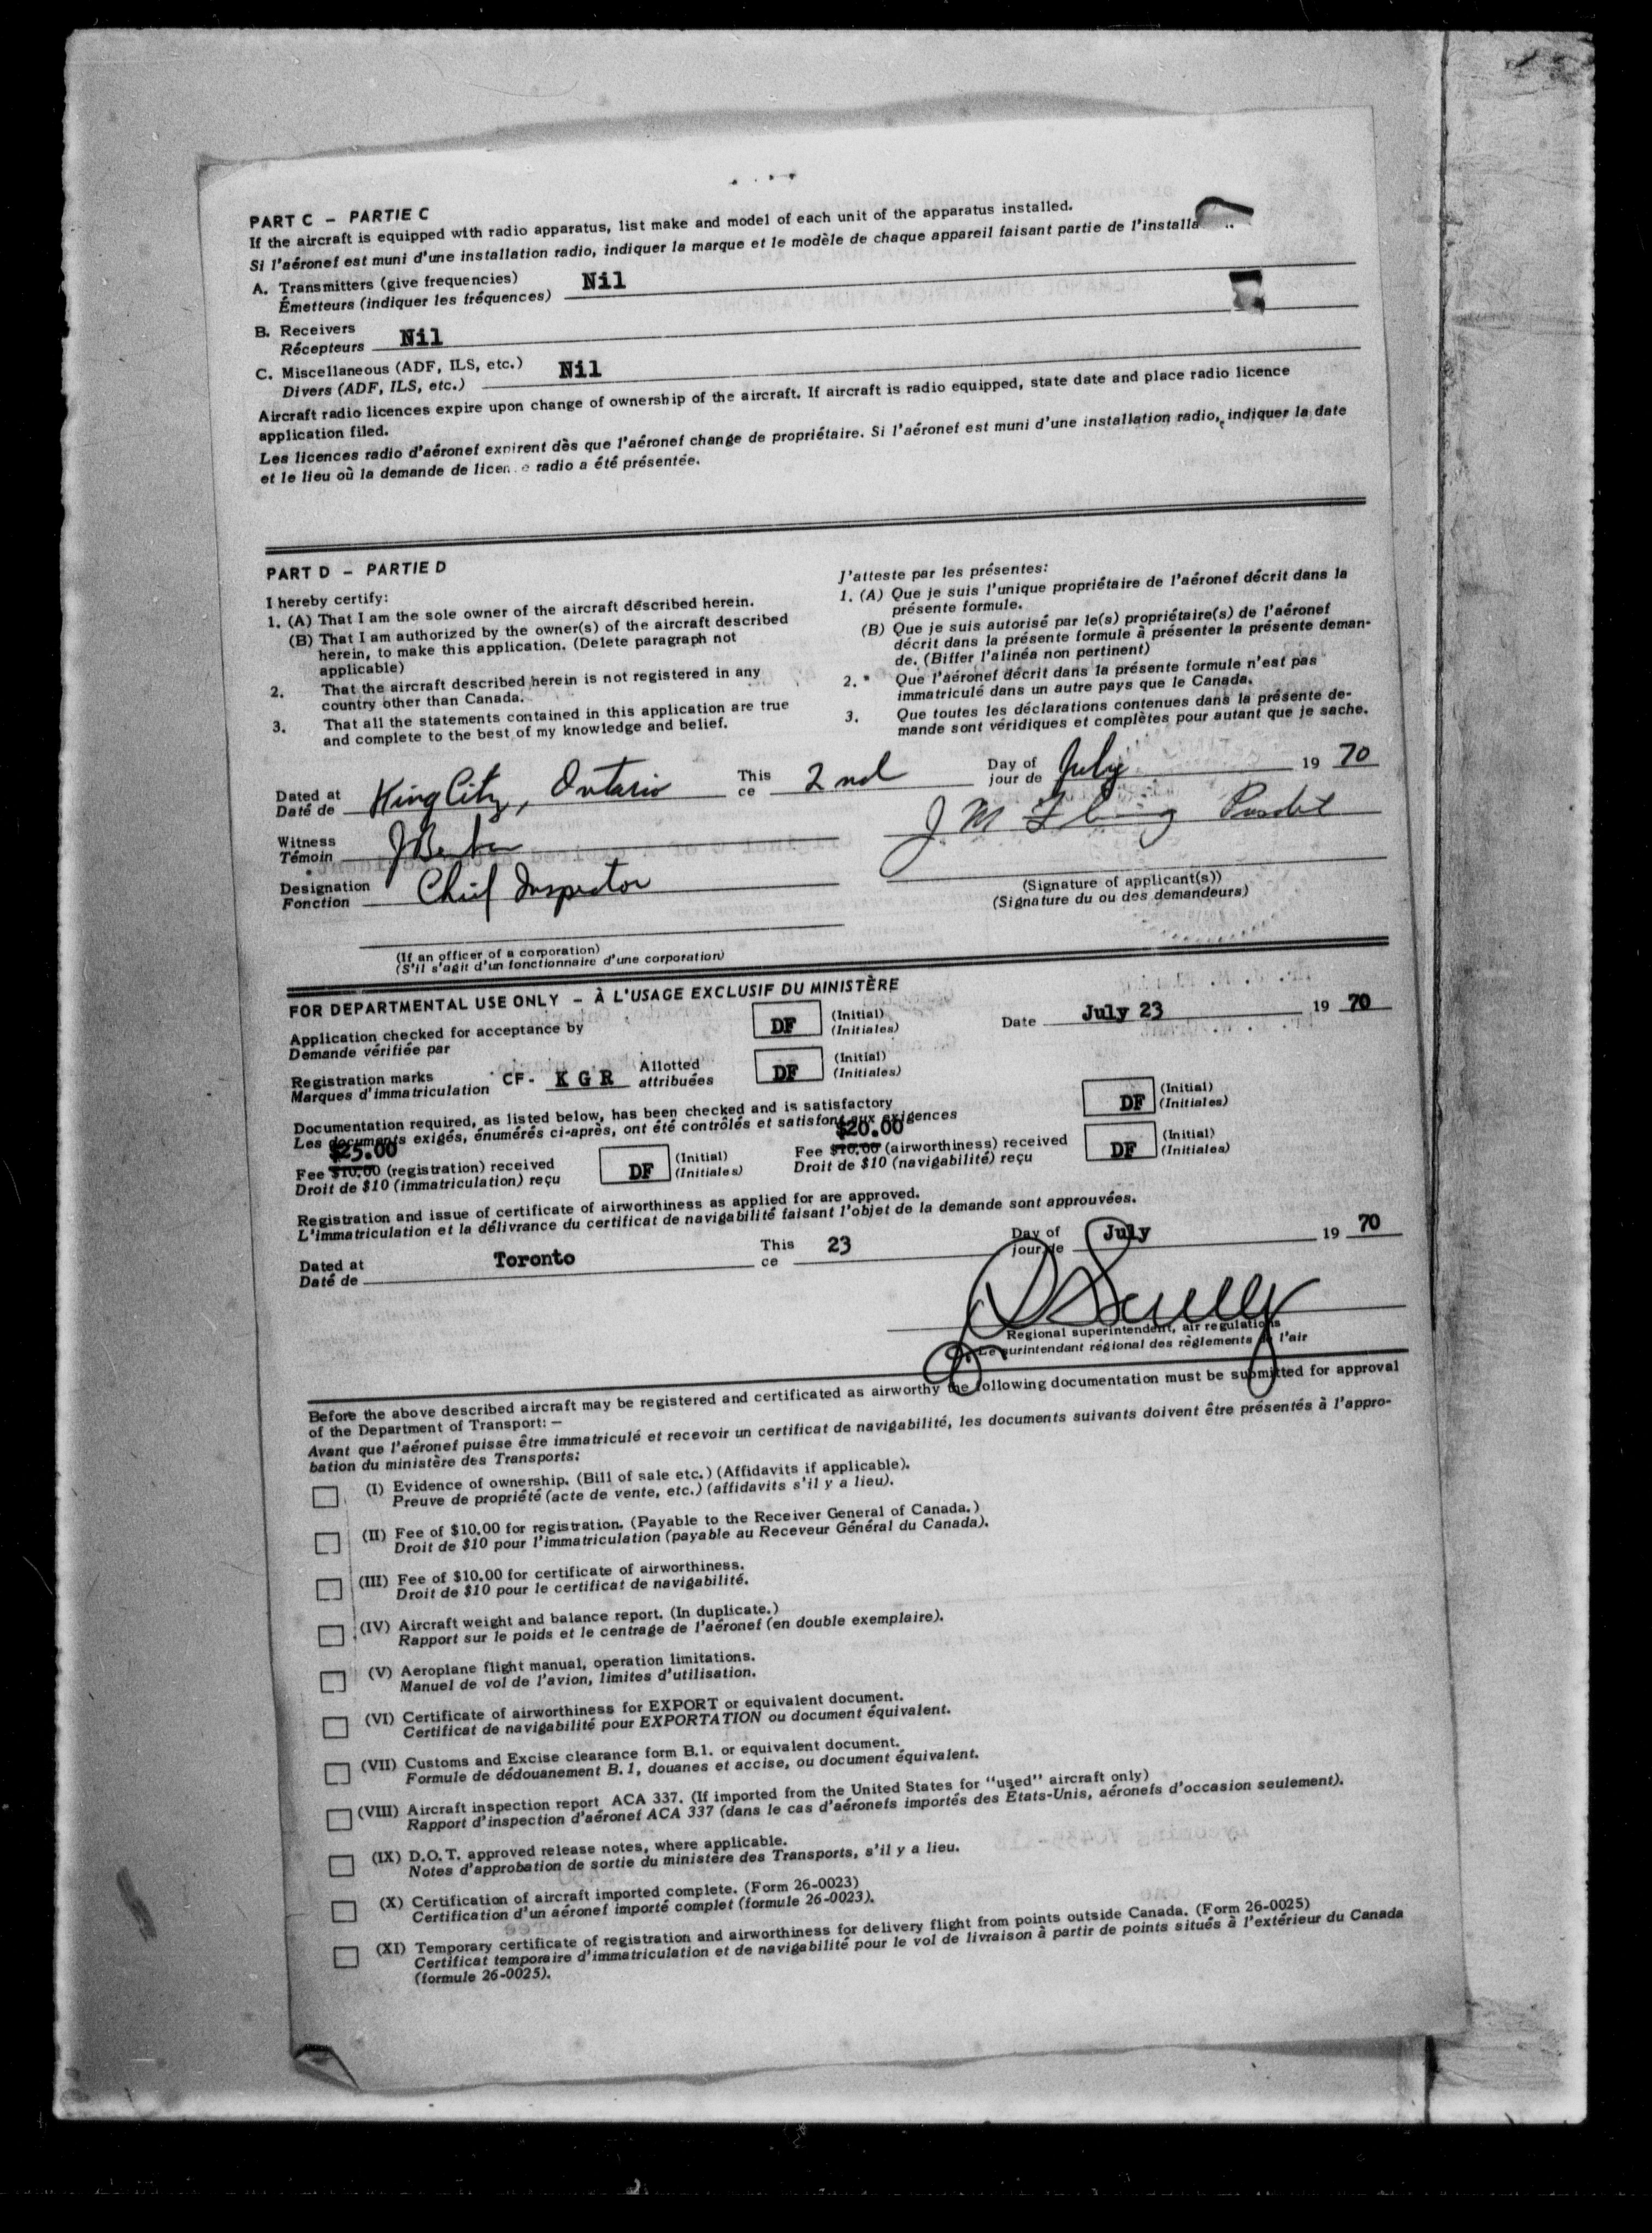 PART C – PARTIE C
If the aircraft is equipped with radio apparatus, list make and model of each unit of the apparatus installed.
Si l'aéronef est muni d'une installation radio, indiquer la marque et le modèle de chaque appareil faisant partie de l'installa
A. Transmitters (give frequencies) Nil
Émetteurs (indiquer les fréquences)
B. Receivers Nil
Récepteurs
C. Miscellaneous (ADF, ILS, etc.) Nil
Divers (ADF, ILS, etc.)
Aircraft radio licences expire upon change of ownership of the aircraft. If aircraft is radio equipped, state date and place radio licence
application filed.
Les licences radio d'aéronef expirent dès que l'aéronef change de propriétaire. Si l'aéronef est muni d'une installation radio, indiquer la date
et le lieu où la demande de licence radio a été présentée.
PART D – PARTIE D
I hereby certify:
1. (A) That I am the sole owner of the aircraft described herein.
(B) That I am authorized by the owner(s) of the aircraft described
herein, to make this application. (Delete paragraph not
applicable)
2. That the aircraft described herein is not registered in any
country other than Canada.
3. That all the statements contained in this application are true
and complete to the best of my knowledge and belief.
J'atteste par les présentes:
1. (A) Que je suis l'unique propriétaire de l'aéronef décrit dans la
présente formule.
(B) Que je suis autorisé par le(s) propriétaire(s) de l'aéronef
décrit dans la présente formule à présenter la présente deman-
de. (Biffer l'alinéa non pertinent)
2. Que l'aéronef décrit dans la présente formule n'est pas
immatriculé dans un autre pays que le Canada.
3. Que toutes les déclarations contenues dans la présente de-
mande sont véridiques et complètes pour autant que je sache.
Dated at King City, Ontario This 2nd Day of July 19 70
Daté de ce jour de
Witness J M
Témoin
Designation Chief Inspector
Fonction
(Signature of applicant(s))
(Signature du ou des demandeurs)
(If an officer of a corporation)
(S'il s'agit d'un fonctionnaire d'une corporation)
FOR DEPARTMENTAL USE ONLY – À L'USAGE EXCLUSIF DU MINISTÈRE
Application checked for acceptance by DF (Initial) Date July 23 19 70
Demande vérifiée par (Initiales)
Registration marks CF- K G R Allotted DF (Initial)
Marques d'immatriculation attribuées (Initiales)
Documentation required, as listed below, has been checked and is satisfactory DF (Initial)
Les documents exigés, énumérés ci-après, ont été contrôlés et satisfont aux exigences (Initiales)
$25.00 $20.00
Fee $10.00 (registration) received DF (Initial) Fee $10.00 (airworthiness) received DF (Initial)
Droit de $10 (immatriculation) reçu (Initiales) Droit de $10 (navigabilité) reçu (Initiales)
Registration and issue of certificate of airworthiness as applied for are approved.
L'immatriculation et la délivrance du certificat de navigabilité faisant l'objet de la demande sont approuvées.
Dated at Toronto This 23 Day of July 19 70
Daté de ce jour de
Regional superintendent, air regulations
Le surintendant régional des règlements de l'air
Before the above described aircraft may be registered and certificated as airworthy the following documentation must be submitted for approval
of the Department of Transport: –
Avant que l'aéronef puisse être immatriculé et recevoir un certificat de navigabilité, les documents suivants doivent être présentés à l'appro-
bation du ministère des Transports:
(I) Evidence of ownership. (Bill of sale etc.) (Affidavits if applicable).
Preuve de propriété (acte de vente, etc.) (affidavits s'il y a lieu).
(II) Fee of $10.00 for registration. (Payable to the Receiver General of Canada.)
Droit de $10 pour l'immatriculation (payable au Receveur Général du Canada).
(III) Fee of $10.00 for certificate of airworthiness.
Droit de $10 pour le certificat de navigabilité.
(IV) Aircraft weight and balance report. (In duplicate.)
Rapport sur le poids et le centrage de l'aéronef (en double exemplaire).
(V) Aeroplane flight manual, operation limitations.
Manuel de vol de l'avion, limites d'utilisation.
(VI) Certificate of airworthiness for EXPORT or equivalent document.
Certificat de navigabilité pour EXPORTATION ou document équivalent.
(VII) Customs and Excise clearance form B.1. or equivalent document.
Formule de dédouanement B.1, douanes et accise, ou document équivalent.
(VIII) Aircraft inspection report ACA 337. (If imported from the United States for "used" aircraft only)
Rapport d'inspection d'aéronef ACA 337 (dans le cas d'aéronefs importés des États-Unis, aéronefs d'occasion seulement).
(IX) D.O.T. approved release notes, where applicable.
Notes d'approbation de sortie du ministère des Transports, s'il y a lieu.
(X) Certification of aircraft imported complete. (Form 26-0023)
Certification d'un aéronef importé complet (formule 26-0023).
(XI) Temporary certificate of registration and airworthiness for delivery flight from points outside Canada. (Form 26-0025)
Certificat temporaire d'immatriculation et de navigabilité pour le vol de livraison à partir de points situés à l'extérieur du Canada
(formule 26-0025).